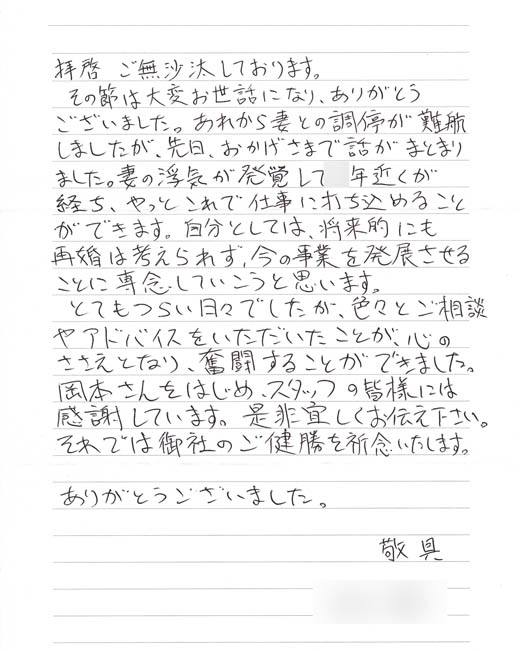 拝啓 ご無沙汰しております。
その節は大変お世話になり、ありがとう
ございました。あれから妻との調停が難航
しましたが、先日、おかげさまで話がまとまり
ました。妻の浮気が発覚して 年近くが
経ち、やっとこれで仕事に打ち込めること
ができます。自分としては、将来的にも
再婚は考えられず、今の事業を発展させる
ことに専念していこうと思います。
とてもつらい日々でしたが、色々とご相談
やアドバイスをいただいたことが、心の
ささえとなり、奮闘することができました。
岡本さんをはじめ、スタッフの皆様には
感謝しています。是非宜しくお伝え下さい。
それでは御社のご健勝を祈念いたします。
ありがとうございました。
敬具